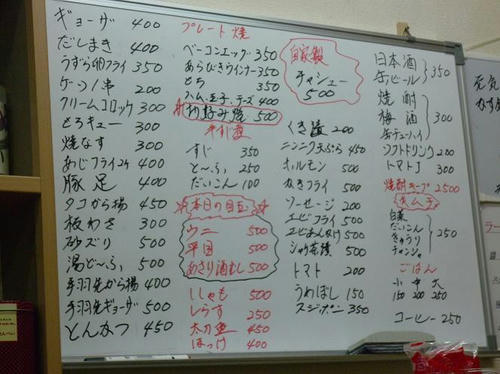 ギョーザ 400
だしまき 400
うずら卵フライ 350
200
クリームコロッケ 300
とろキュー 300
焼なす 300
あじフライ2ケ 400
豚足 400
タコから揚 450
板わさ 300
砂ズリ 500
湯どーふ 500
手羽先から揚 400
手羽先ギョーザ 500
とんかつ 450
プレート焼
ベーコンエッグ 350
あらびきウインナー 350
とち 350
ハム、玉子、チーズ 400
お好み焼 500
すじ 350
とーふ 250
だいこん 100
本日の目玉
ウニ 500
平目 500
あさり酒むし 500
ししゃも 500
しらす 250
太刀魚 450
ほっけ 400
自家製
チャシュー
500
くき漬 200
ニンニク天ぷら 450
ホルモン 500
カキフライ 500
ソーセージ 200
エビフライ 500
500
500
トマト 200
うめぼし 150
スジポン 350
日本酒
缶ビール 350
焼酎
梅酒
缶チューハイ 300
ソフトドリンク 200
トマトJ 300
焼酎キープ 2500
キムチ
白菜
だいこん
きゅうり
チャンジャ 250
ごはん
小 中 大
150 200 250
コーヒー 250